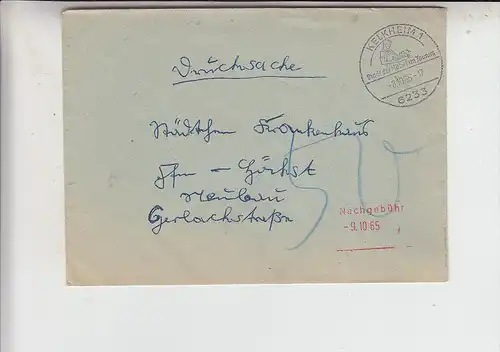 KELKHEIM 1
6233
Drucksache
Städtchen Krankenhaus
Ffm - Höchst
Neubau
Gerlachstraße
50
Nachgebühr
- 9. 10. 65